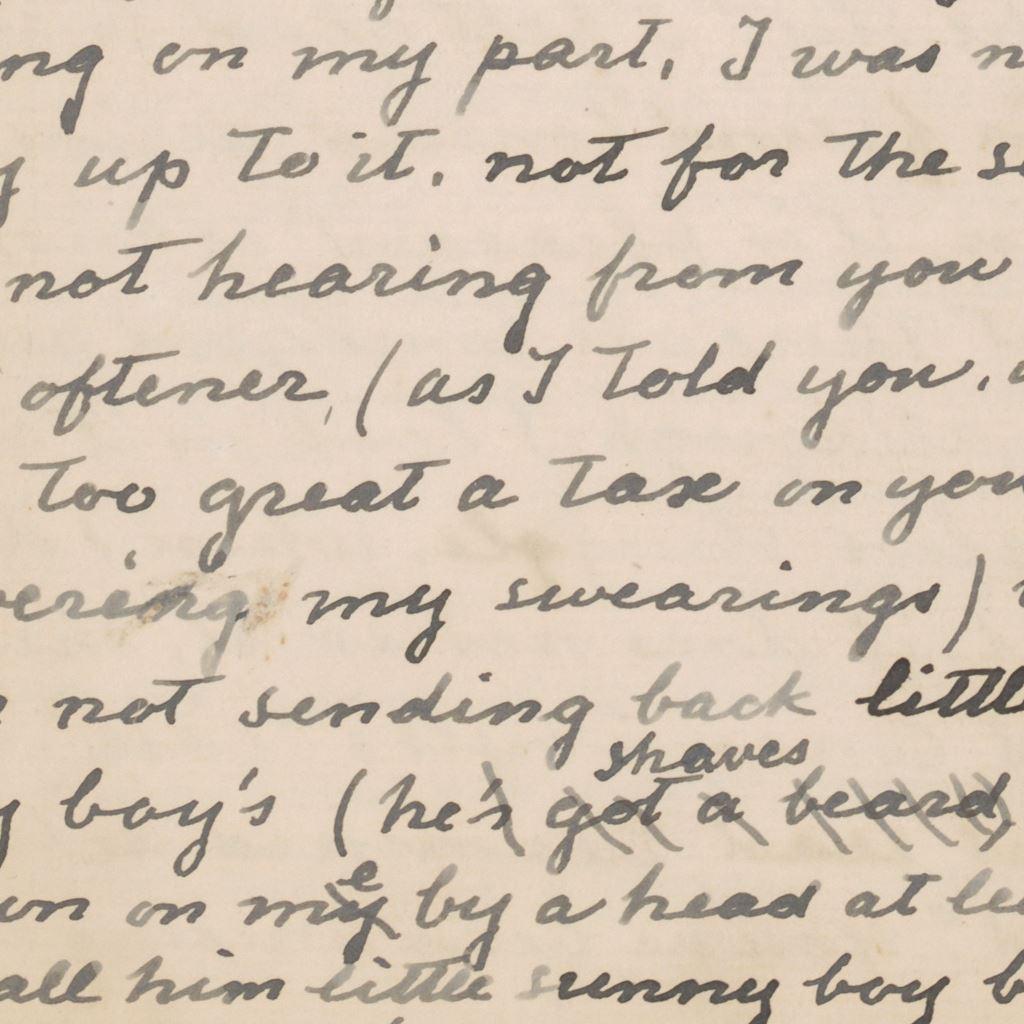 ng on my part, I was n
y up to it, not for the s
not hearing from you
oftener, (as I told you,
too great a tax on you
ering my swearings)
not sending back little
shaves
y boy's (he's got a beard,
on me by a head at le
all him little sunny boy b